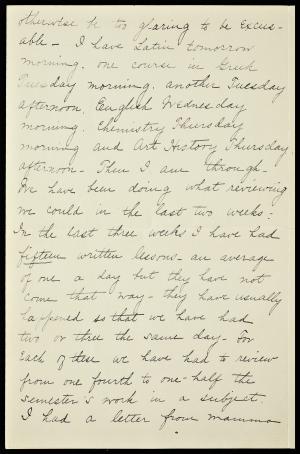 otherwise be too glaring to be excus-
able - I have Latin tomorrow
morning. one course in Greek
Tuesday morning. another Tuesday
afternoon, English Wednesday
morning. Chemistry Thursday
morning and Art History Thursday
afternoon - Then I am through.
We have been doing what reviewing
we could in the last two weeks:
In the last three weeks I have had
fifteen written lessons - an average
of one a day but they have not
come that way - they have usually
happened so that we have had
two or three the same day - For
each of these we have had to review
from one fourth to one-half the
semester's work in a subject.
I had a letter from mamma